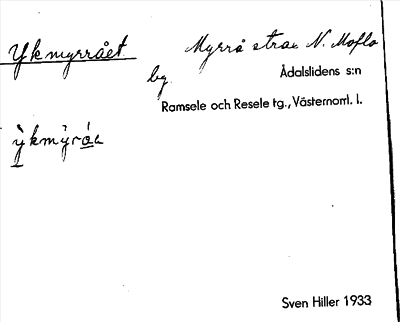 Ykmyrrået
Myrrå strax N. Moflo
by.
Ådalslidens s:n
Ramsele och Resele tg., Västernorrl. l.
ỳkmỳróa
Sven Hiller 1933